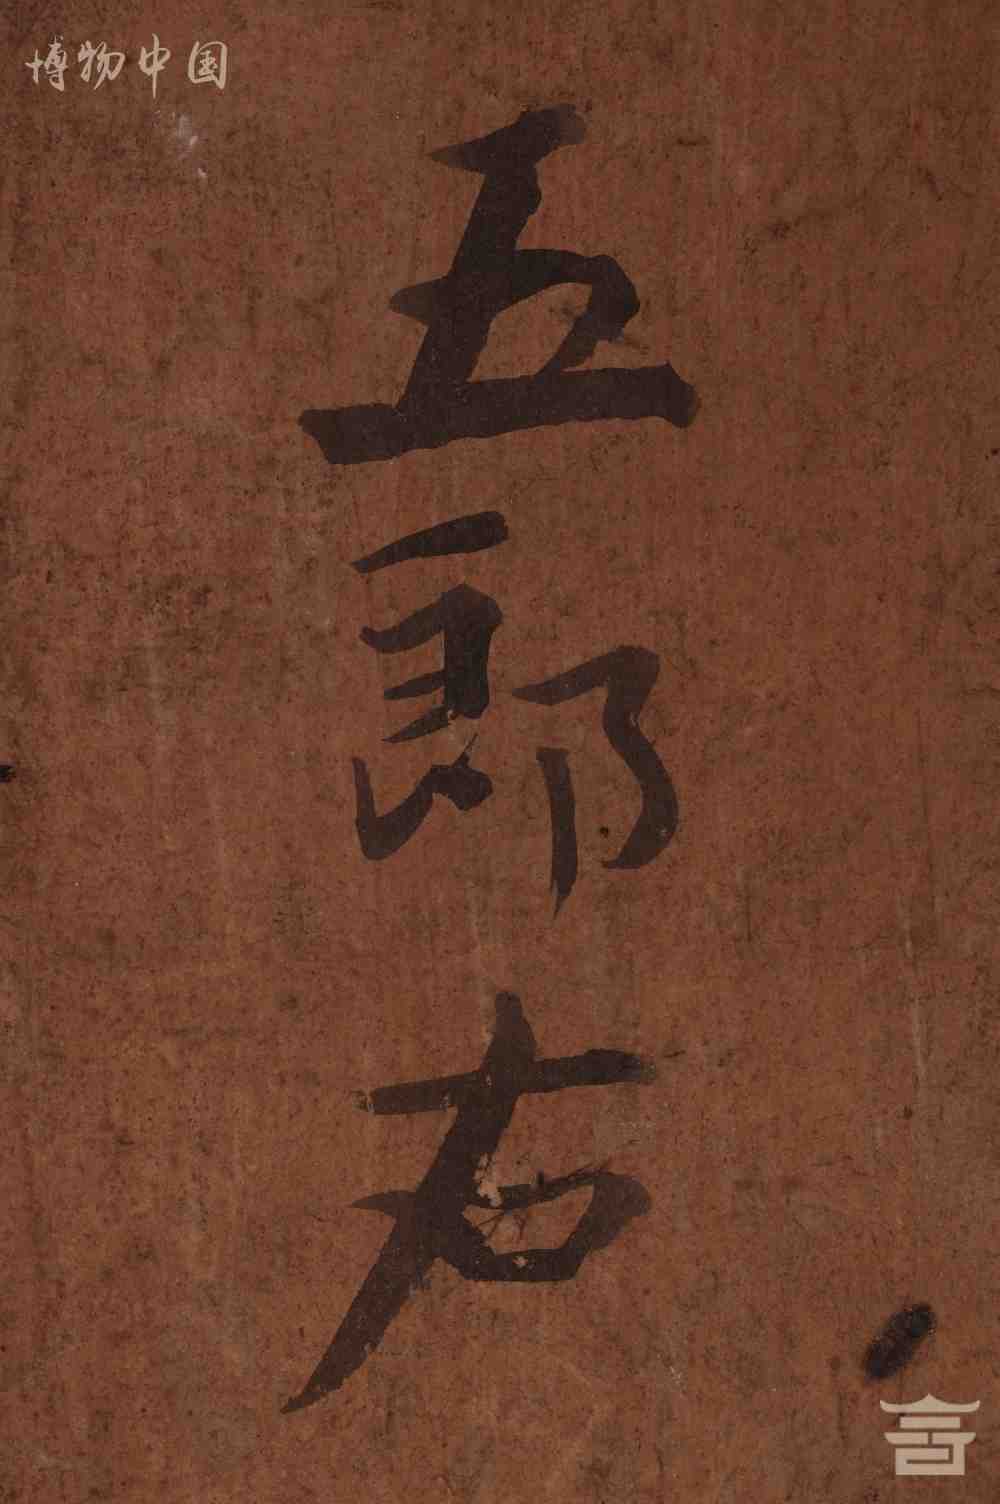 博物中国
五郎右